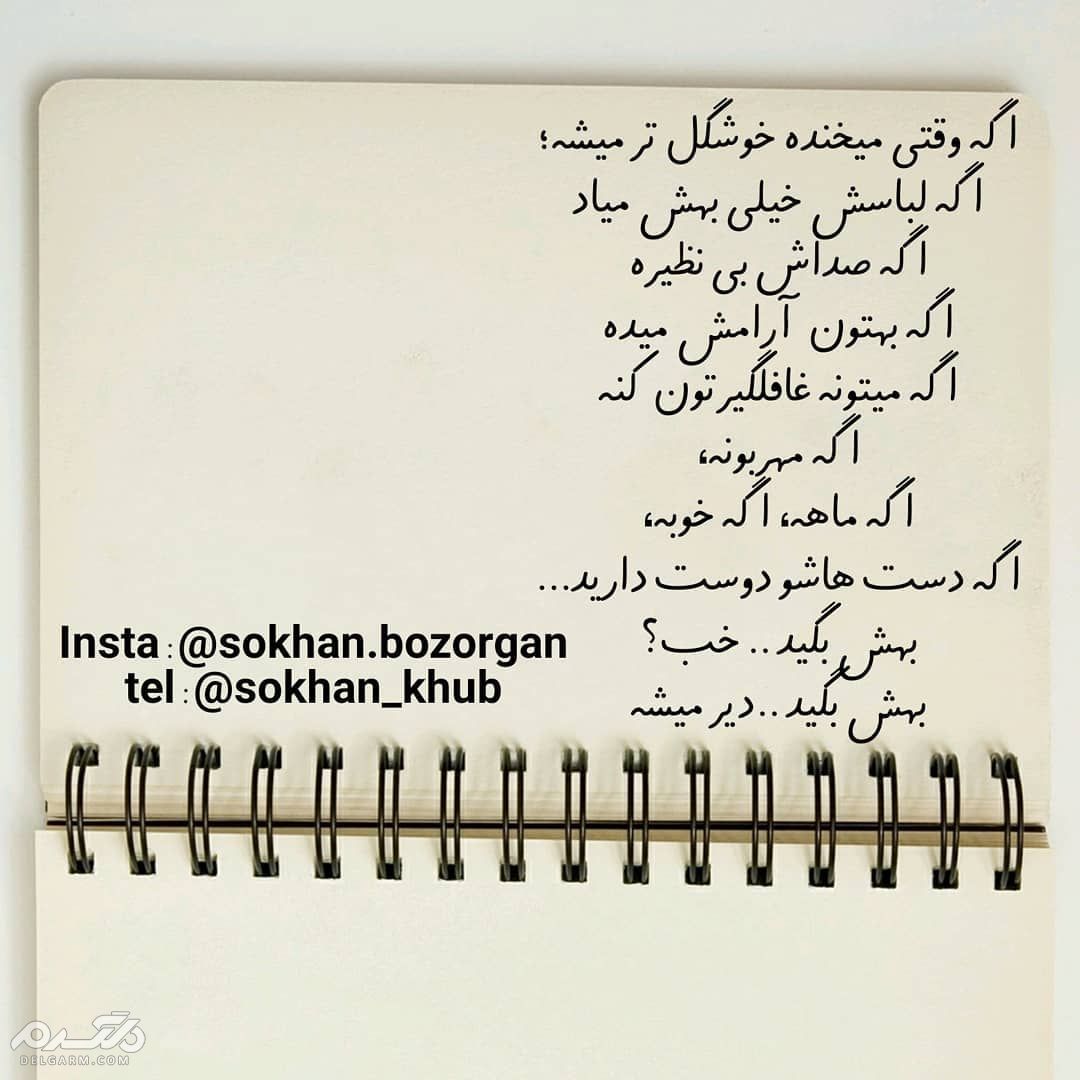 اگه وقتی میخنده خوشگل تر میشه؛
اگه لباسش خیلی بهش میاد
اگه صداش بی نظیره
اگه بهتون آرامش میده
اگه میتونه غافلگیرتون کنه
اگه مهربونه،
اگه ماهه، اگه خوبه،
اگه دست هاشو دوست دارید...
بهش بگید.. خب؟
بهش بگید..دیر میشه
Insta:@sokhan.bozorgan
tel:@sokhan_khub
دلگرم
DELGARM.COM